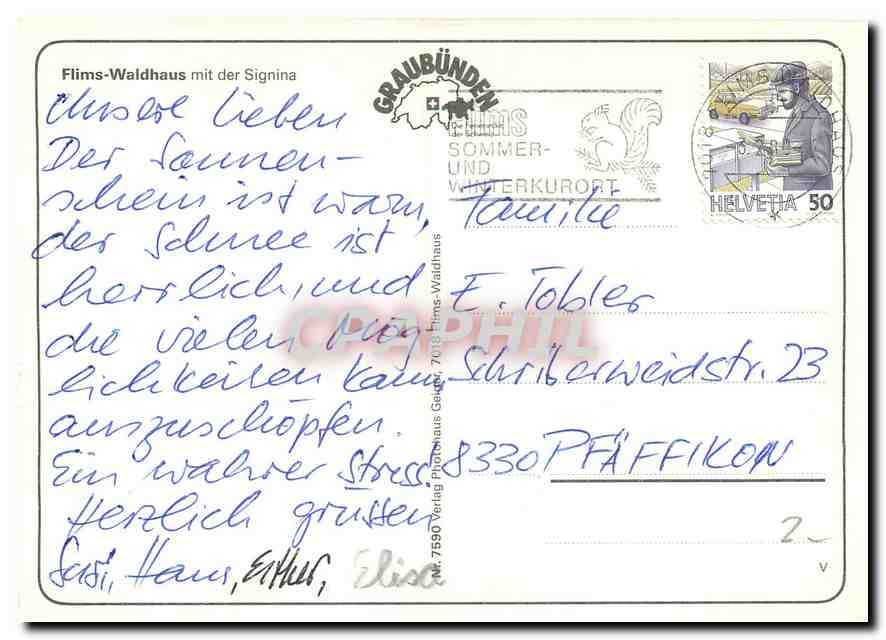 Flims-Waldhaus mit der Signina
Unsere Lieben
Der Sonnen-
schein ist warm,
der Schnee ist
herrlich, und
die vielen Mög-
lichkeiten kaum
auszuschöpfen.
Ein wahrer Stress!
Herzlich grüssen
Susi, Hans, Esther, Elisa
GRAUBÜNDEN
Die Ferienecke
der Schweiz
FLIMS
SOMMER-
UND
WINTERKURORT
7018 FLIMS WALDHAUS
HELVETIA 50
Familie
E. Tobler
Schriberweidstr. 23
8330 PFÄFFIKON
Nr. 7590 Verlag Photohaus Geiger, 7018 Flims-Waldhaus
CPAPHIL
2.-
V